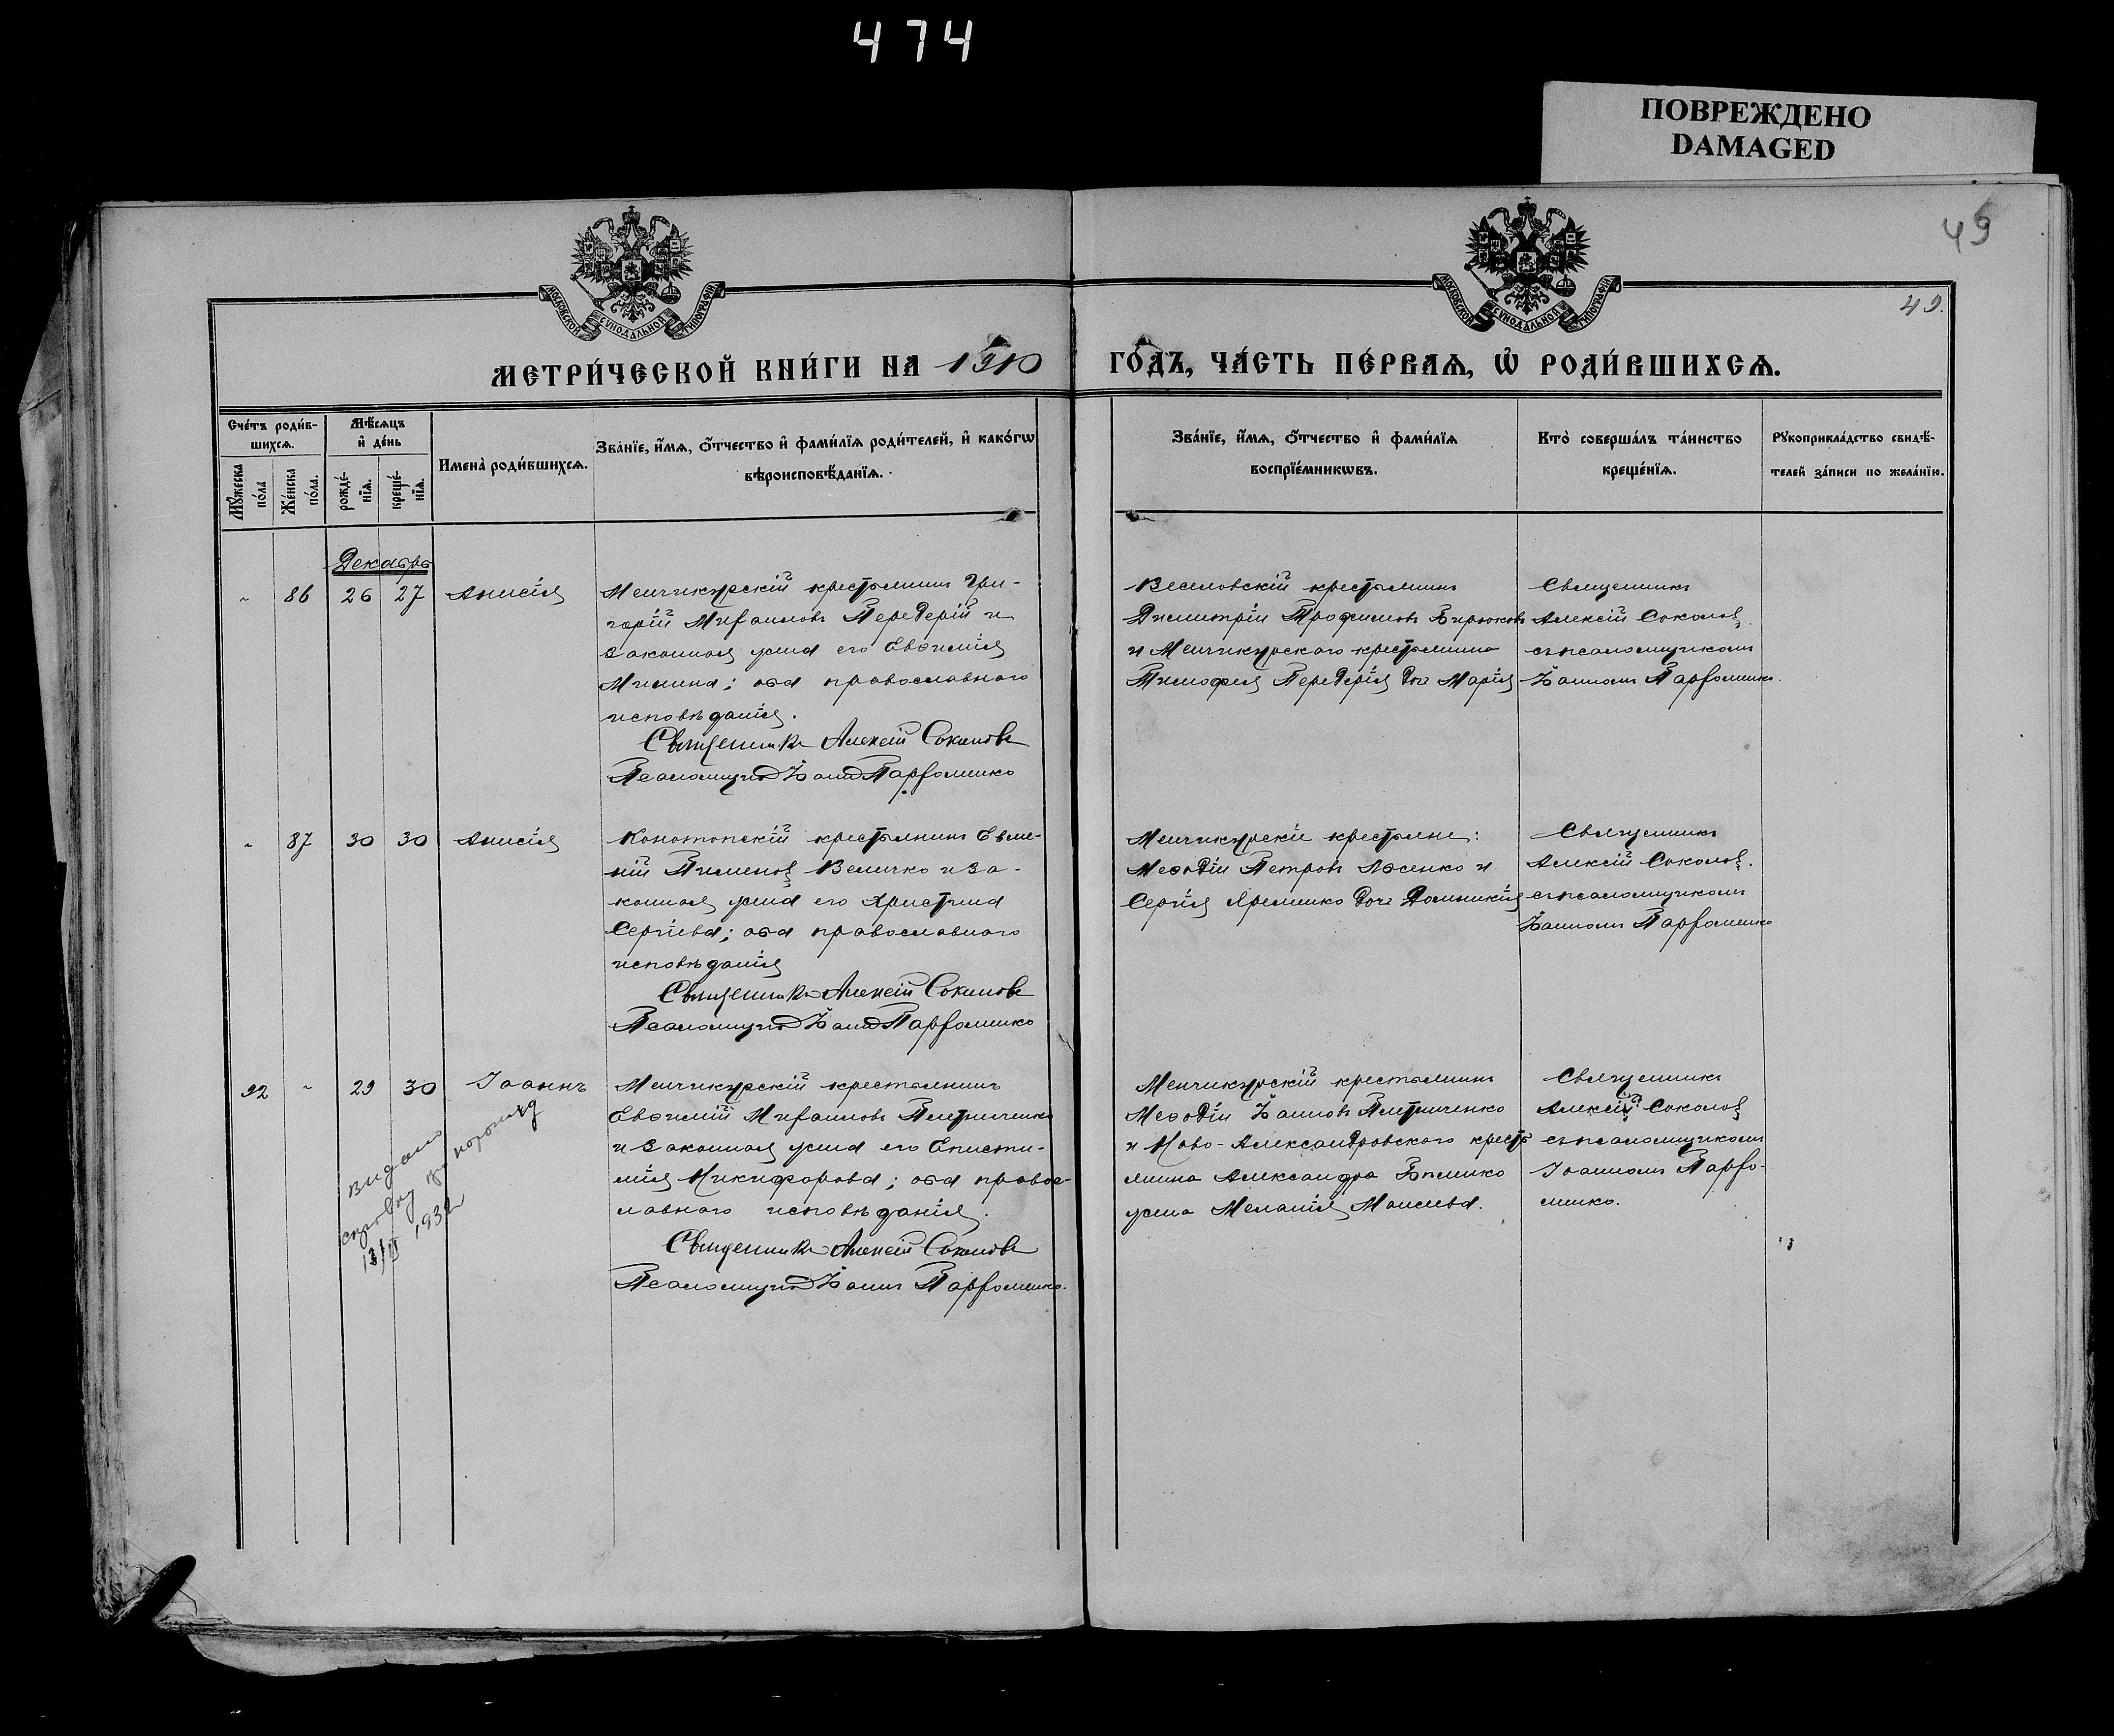 474
ПОВРЕЖДЕНО
DAMAGED
49
49.
МОСКОВСКОЙ СѴНОДАЛЬНОЙ ТИПОГРАФІИ
МОСКОВСКОЙ СѴНОДАЛЬНОЙ ТИПОГРАФІИ
МЕТРИ́ЧЕСКОЙ КНИ́ГИ НА 1910 ГО́ДЪ, ЧА́СТЬ ПЕ́РВАѦ, Ѡ РОДИ́ВШИХСѦ.
Сче́тъ роди́в-
шихсѧ.
Мꙋ́жеска
по́ла
Же́нска
по́ла.
Мѣ́сѧцъ
и҆ де́нь
рожде́-
нїѧ.
креще́-
нїѧ.
И҆мена̀ роди́вшихсѧ.
Зва́нїе, и҆́мѧ, ѻ҆́тчество и҆ фами́лїѧ роди́телей, и҆ како́гѡ
вѣроисповѣ́данїѧ.
Зва́нїе, и҆́мѧ, ѻ҆́тчество и҆ фами́лїѧ
воспрїе́мникѡвъ.
Кто̀ соверша́лъ та́инство
креще́нїѧ.
Рꙋкоприкла́дство свидѣ́-
телей за́писи по жела́нїю.
Декабрь
" 86 26 27 Анисія
Менчикурскій крестьянинъ Гри-
горій Михаиловъ Передерій и
законная жена его Евѳимія
Минина; оба православнаго
исповѣданія.
Священникъ Алексій Соколовъ
Псаломщикъ Іоаннъ Парфоменко
Веселовскій крестьянинъ
Димитрій Трофимовъ Бирюковъ
и Менчикурскаго крестьянина
Тимофея Передерія дочь Марія
Священникъ
Алексій Соколовъ
съ псаломщикомъ
Іоанномъ Парфоменко.
" 87 30 30 Анисія
Конотопскій крестьянинъ Евме-
ній Пименовъ Величко и за-
конная жена его Христина
Сергіева; оба православнаго
исповѣданія
Священникъ Алексій Соколовъ
Псаломщикъ Іоаннъ Парфоменко
Менчикурскіе крестьяне:
Меѳодій Петровъ Лысенко и
Сергія Яременко дочь Домникія
Священникъ
Алексій Соколовъ.
съ псаломщикомъ
Іоанномъ Парфоменко
92 " 29 30 Іоаннъ
Видано
справку про народж
13/II 1932
Менчикурскій крестьянинъ
Евѳимій Михаиловъ Плетниченко
и законная жена его Еписти-
мія Никифорова; оба правос-
лавнаго исповѣданія.
Священникъ Алексій Соколовъ
Псаломщикъ Іоаннъ Парфоменко.
Менчикурскій крестьянинъ
Меѳодій Іоанновъ Плетниченко
и Ново-Александровскаго кресть
янина Александра
жена Меланія Моисеева.
Священникъ
Алексій Соколовъ
съ псаломщикомъ
Іоанномъ Парфо-
менко.